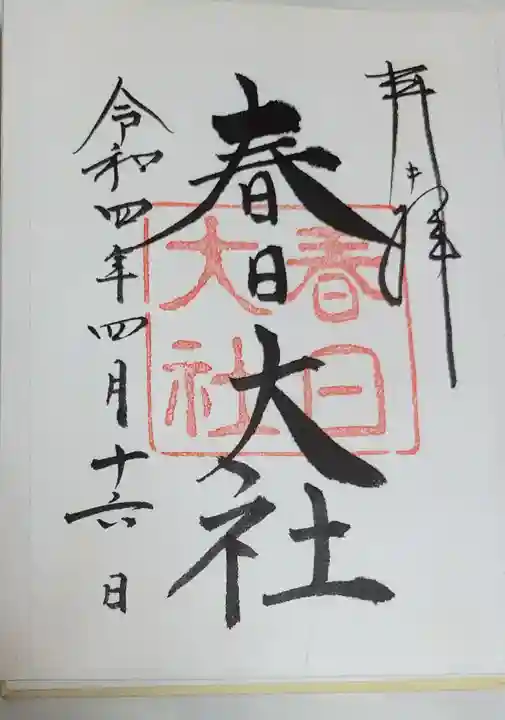 奉拝
春日大社
令和四年四月十六日
春日
大社